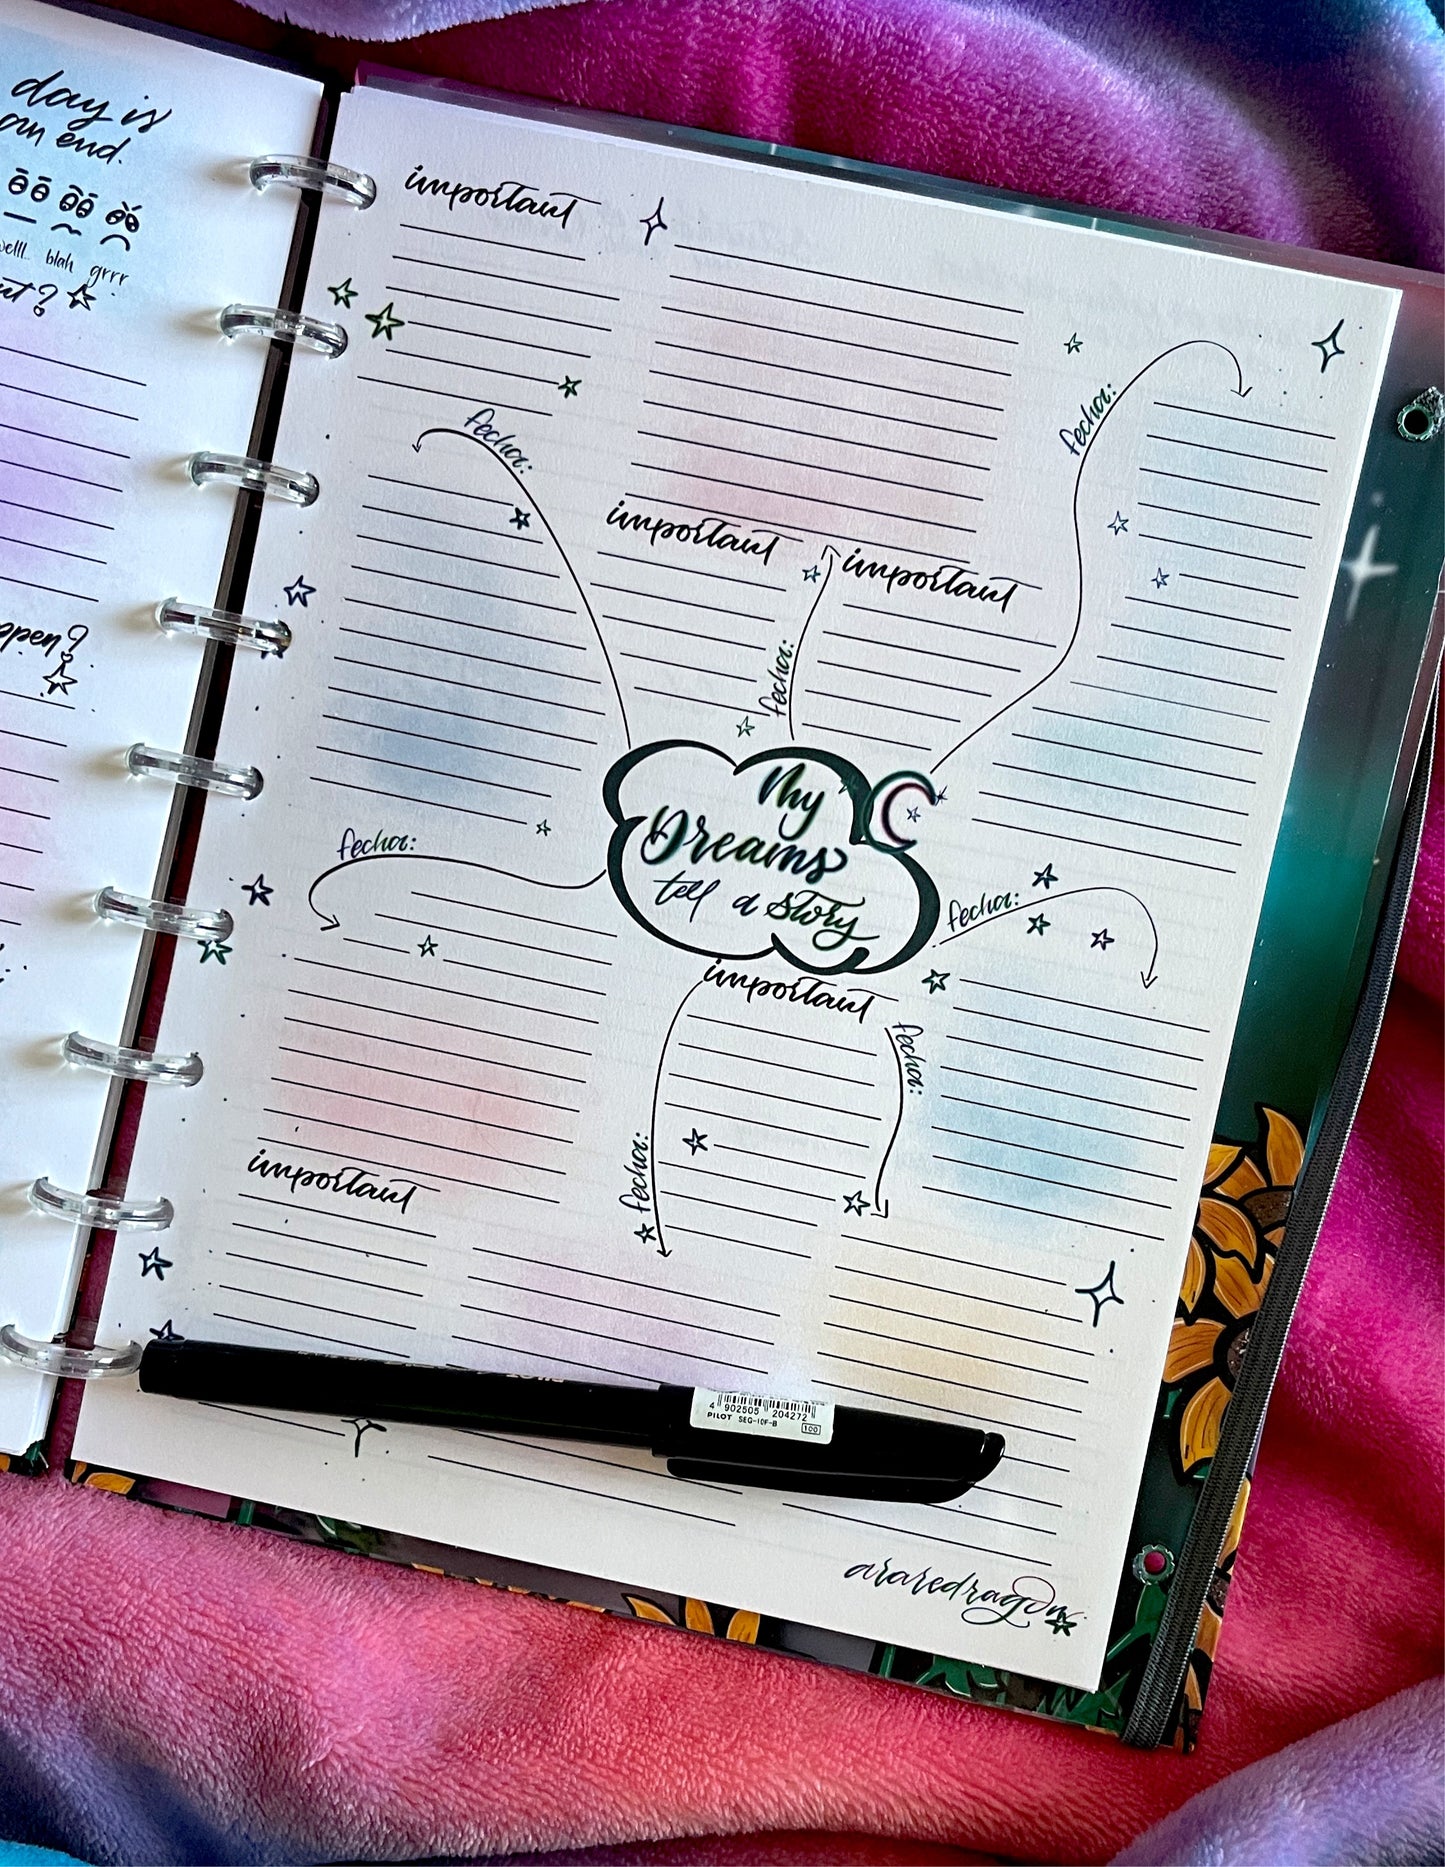 day is
an end.
blah grrr
important
fecha:
fecha:
important
important
fecha:
My
Dreams
tell a story
fecha:
fecha:
important
fecha:
fecha:
important
4 902505 204272
PILOT SEG-10F-B
100
araredragon